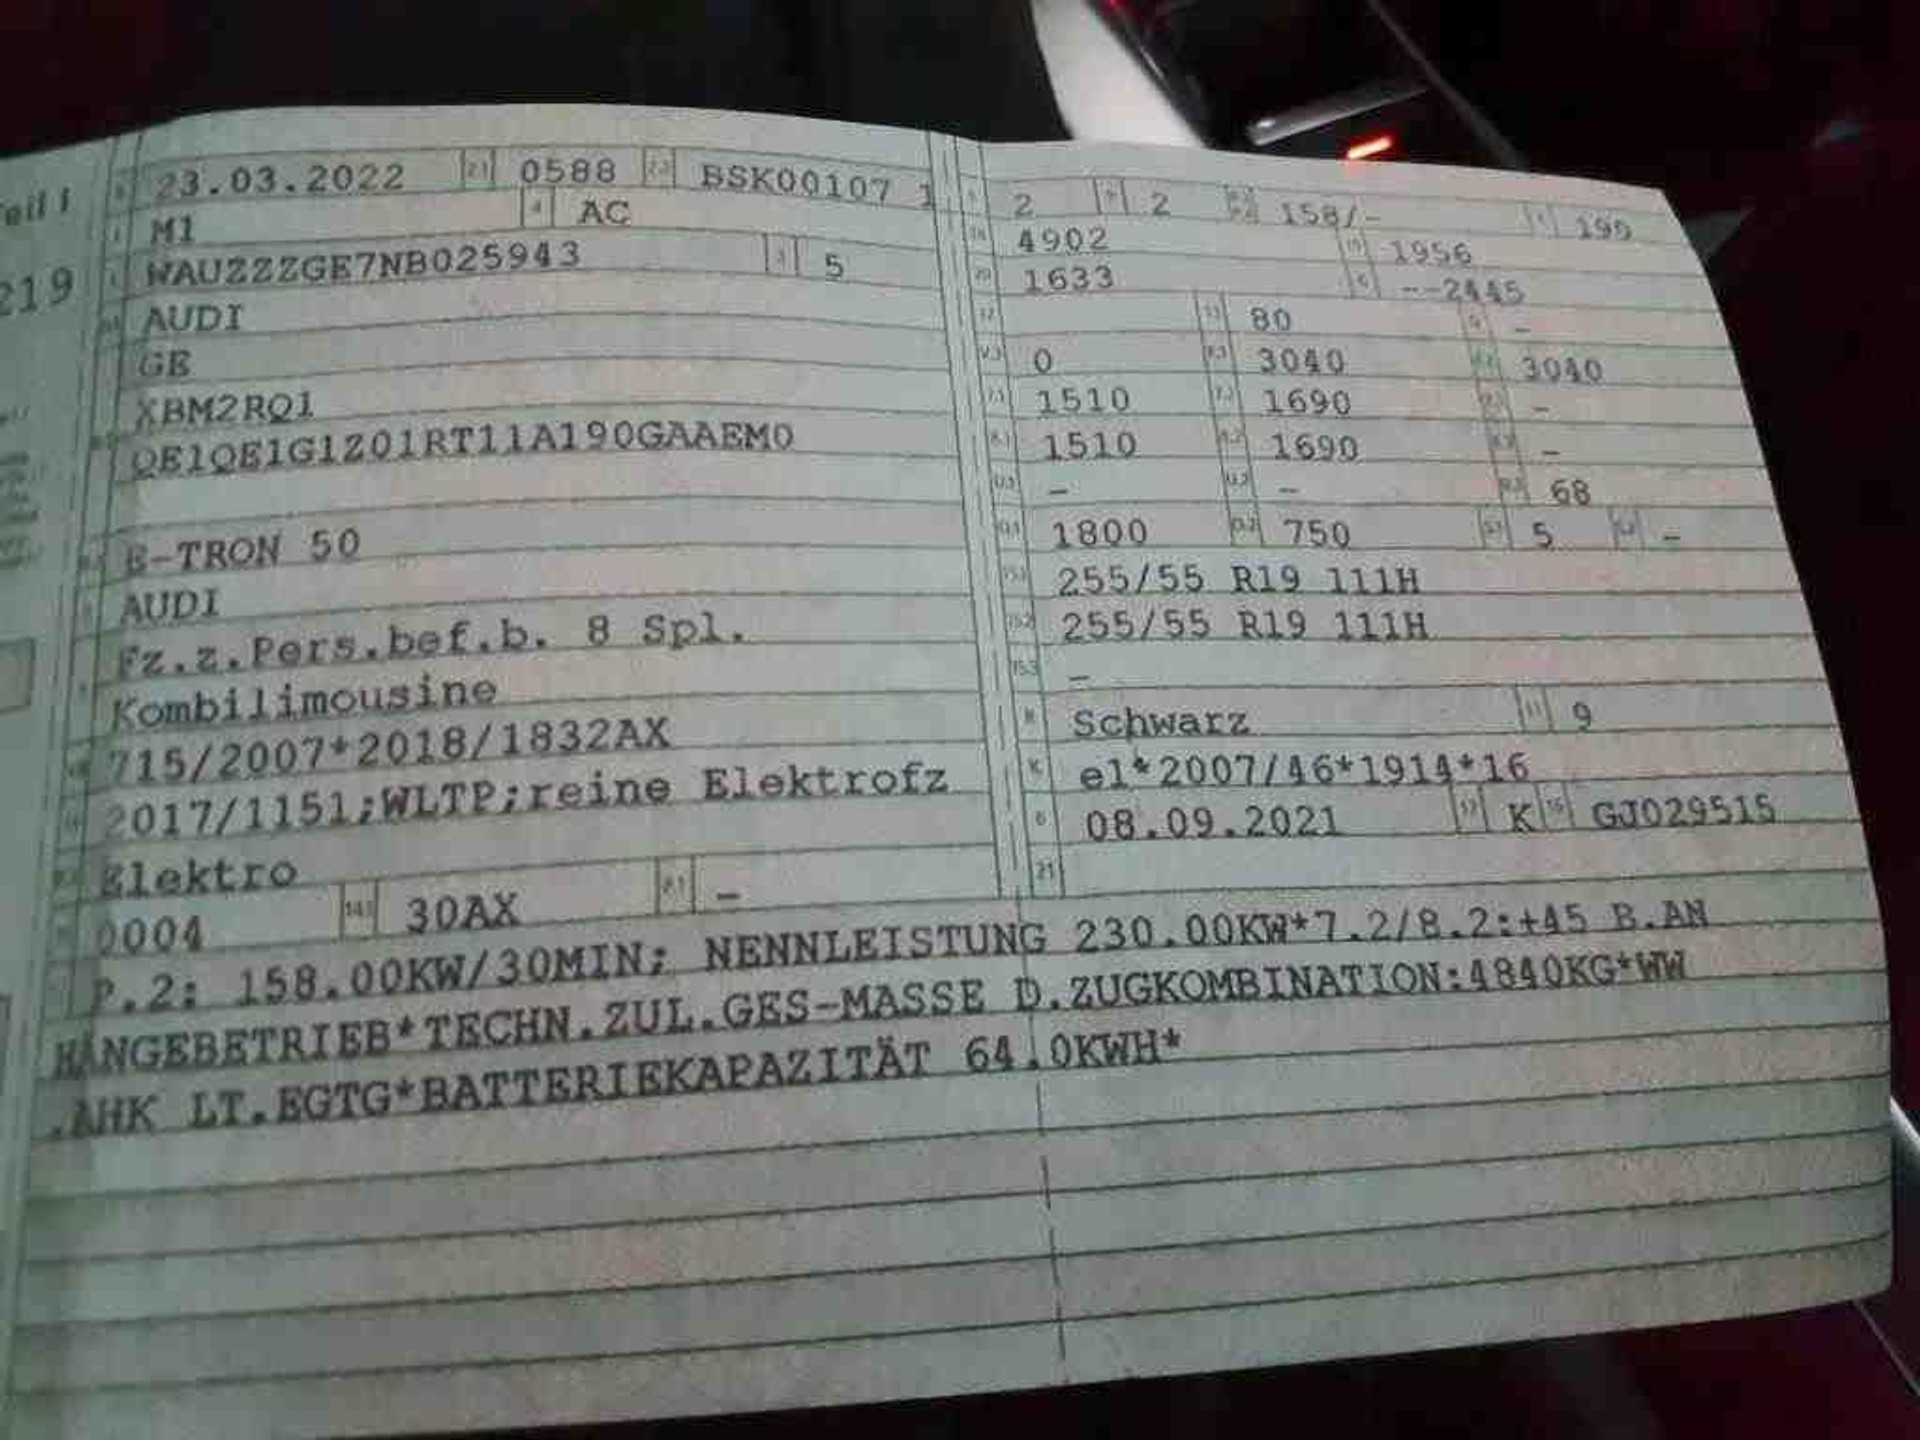 Teil I
219
23.03.2022 2.1 0588 2.2 BSK00107 1
M1 4 AC
WAUZZZGE7NB025943 3 5
AUDI
GE
XBM2RQ1
QE1QE1G1Z01RT11A190GAAEM0
E-TRON 50
AUDI
Fz.z.Pers.bef.b. 8 Spl.
Kombilimousine
715/2007*2018/1832AX
2017/1151;WLTP;reine Elektrofz
Elektro
0004 14.1 30AX P.1 -
2 2 158/- 190
18 4902 19 1956
20 1633 G --2445
12 13 80 Q -
V.7 0 F.1 3040 F.2 3040
7.1 1510 7.2 1690 7.3 -
8.1 1510 8.2 1690 8.3 -
U.1 - U.2 - U.3 68
O.1 1800 O.2 750 S.1 5 S.2 -
15.1 255/55 R19 111H
15.2 255/55 R19 111H
15.3 -
R Schwarz 11 9
K e1*2007/46*1914*16
6 08.09.2021 17 K 16 GJ029515
21
P.2: 158.00KW/30MIN; NENNLEISTUNG 230.00KW*7.2/8.2:+45 B.AN
HÄNGEBETRIEB*TECHN.ZUL.GES-MASSE D.ZUGKOMBINATION:4840KG*WW
.AHK LT.EGTG*BATTERIEKAPAZITÄT 64.0KWH*